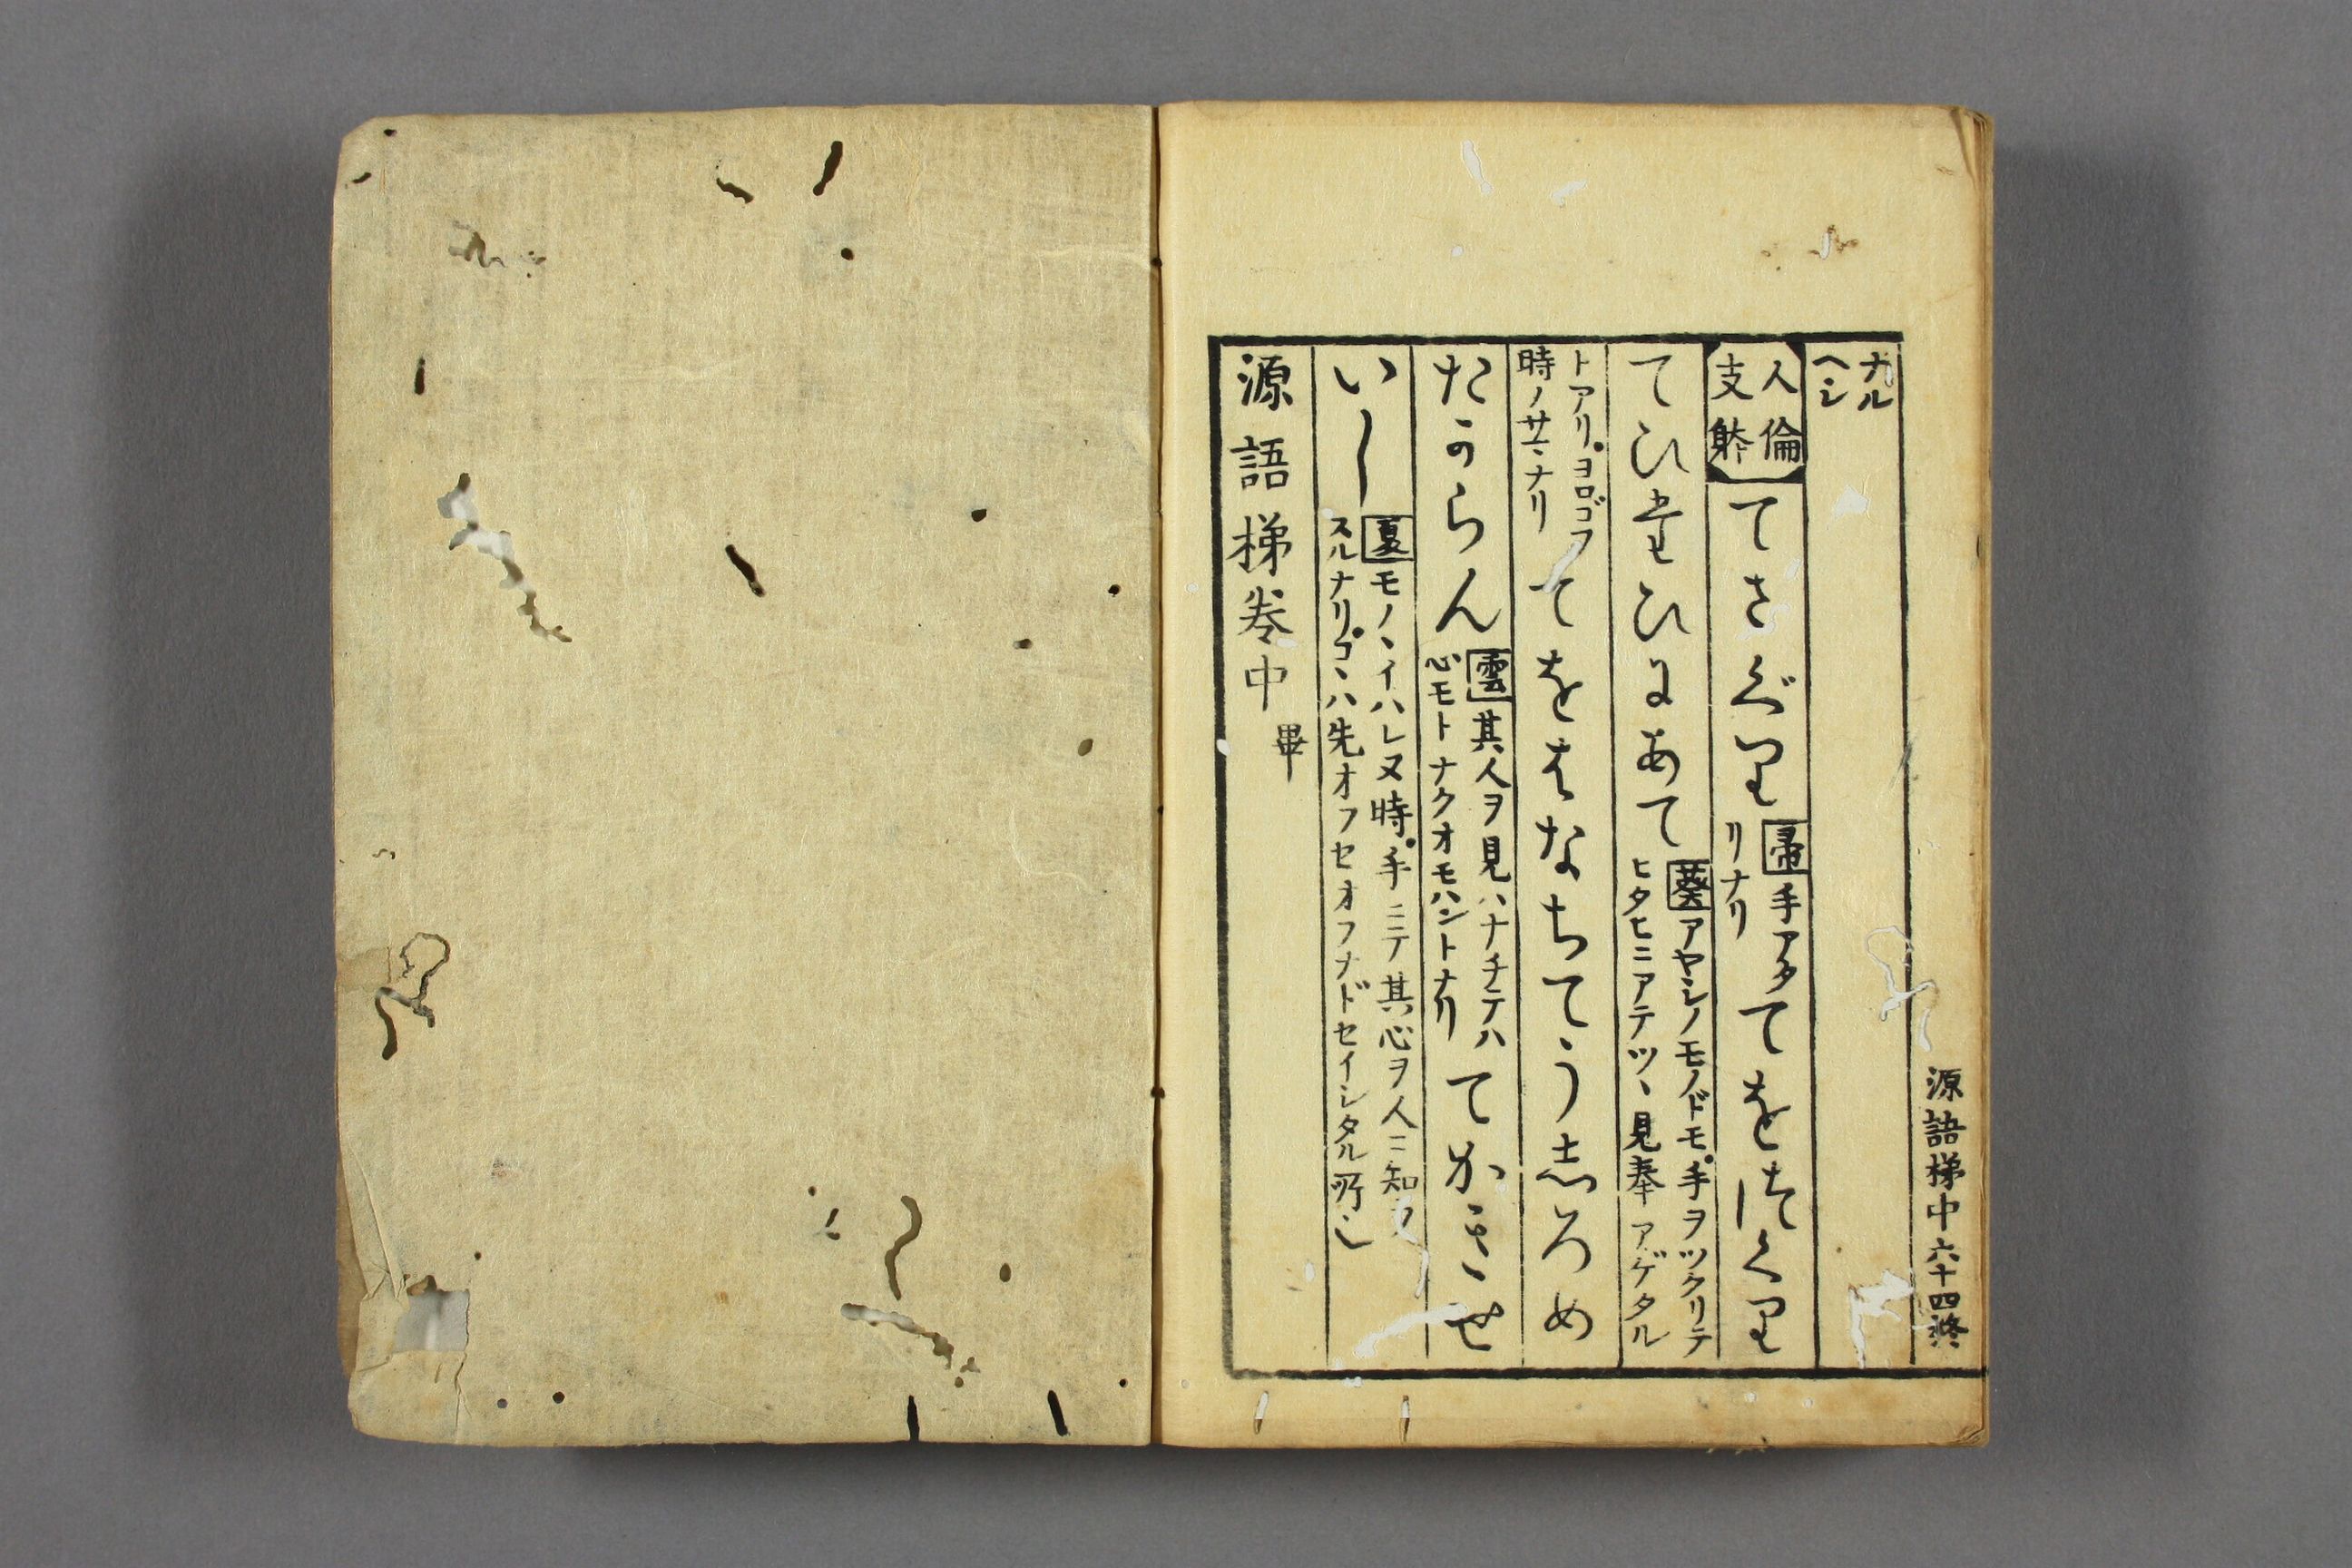 源語梯中 六十四終
ナル
ヘシ
人倫
支躰
てさぐり
帚 手アタ
リナリ
てをつくり
てひたひにあて
葵 アヤシノモノドモ。手ヲツクリテ
ヒタヒニアテツヽ見奉アゲタル
トアリ。ヨロコブ
時ノサマナリ
てをはなちてうしろめ
たからん
雲 其人ヲ見ハナチテハ
心モトナクオモハントナリ
てかきせ
いし
夏 モノヽイハレヌ時。手ニテ其心ヲ人ニ知
スルナリ。コヽハ先オフセオフナドセイシタル所也
源語梯巻中 畢